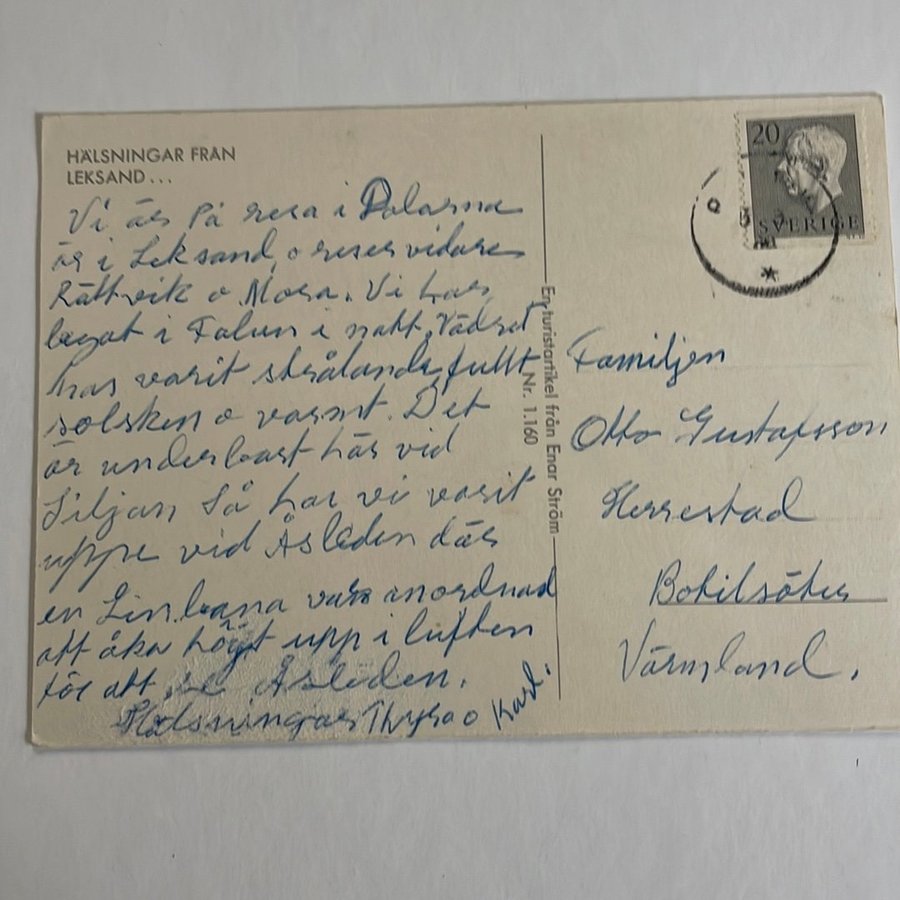 HÄLSNINGAR FRÅN
LEKSAND...
Vi är på resa i Dalarna
är i Leksand, o reser vidare
Rättvik o Mora. Vi har
legat i Falun i natt, Vädret
har varit strålande, fullt
solsken o varmt. Det
är underbart här vid
Siljan Så har vi varit
uppe vid Åsleden där
en Linbana var anordnad
att åka högt upp i luften
för att se Åsleden.
Hälsningar Thyra o Karl.
En turistartikel från Enar Ström
Nr. 1.160
20
SVERIGE
Familjen
Otto Gustafsson
Herrestad
Värmland.